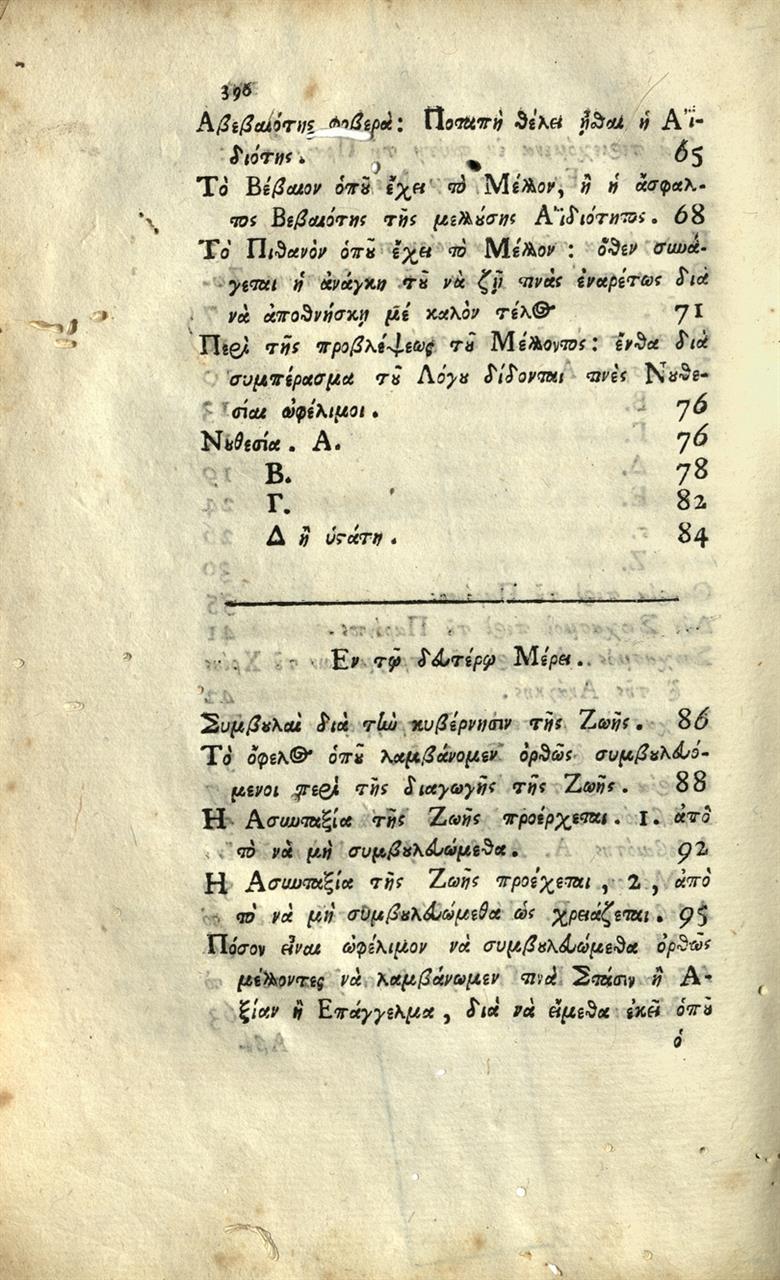 396
Αβεβαιότης φοβερὰ: Ποταπὴ θέλει ἦθαι ἡ Αἵ-
διότης. 65
Τὸ Βέβαιον ὁποῦ ἔχει τὸ Μέλλον, ἢ ἡ ἄσφαλ-
τος Βεβαιότης τῆς μελλούσης Αἵδιότητος. 68
Τὸ Πιθανὸν ὁποῦ ἔχει τὸ Μέλλον : ὅθεν συνά-
γεται ἡ ἀνάγκη τοῦ νὰ ζῇ τινὰς ἐναρέτως διὰ
νὰ ἀποθνήσκῃ μὲ καλὸν τέλος 71
Περὶ τῆς προβλέψεως τοῦ Μέλλοντος : ἔνθα διὰ
συμπέρασμα τοῦ Λόγου δίδονται τινὲς Νουθε-
σίαι ὠφέλιμοι. 76
Νουθεσία. Α. 76
Β. 78
Γ. 82
Δ ἢ ὑστάτη. 84
Εν τῷ δευτέρῳ Μέρει.
Συμβουλαὶ διὰ τὴν κυβέρνησιν τῆς Ζωῆς. 86
Τὸ ὄφελος ὁποῦ λαμβάνομεν ὀρθῶς συμβουλευό-
μενοι περὶ τῆς διαγωγῆς τῆς Ζωῆς. 88
Η Ασυνταξία τῆς Ζωῆς προέρχεται. 1. ἀπὸ
τὸ νὰ μὴ συμβουλευώμεθα. 92
Η Ασυνταξία τῆς Ζωῆς προέχεται, 2, ἀπὸ
τὸ νὰ μὴ συμβουλευώμεθα ὡς χρειάζεται. 95
Πόσον εἶναι ὠφέλιμον νὰ συμβουλευώμεθα ὀρθῶς
μέλλοντες νὰ λαμβάνωμεν τινὰ Στάσιν ἢ Α-
ξίαν ἢ Επάγγελμα, διὰ νὰ εἴμεθα ἐκεῖ ὁποῦ
ὁ